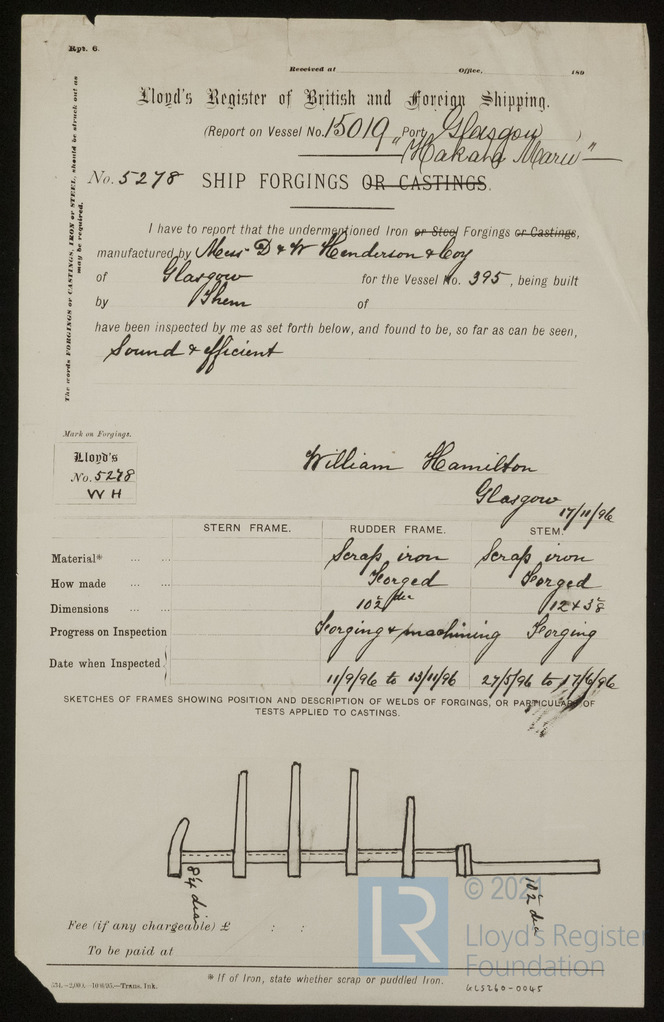 Rpt. 6.
Received at Office, 189
Lloyd's Register of British and Foreign Shipping.
(Report on Vessel No. 15019 Port Glasgow )
"Hakata Maru"
No. 5278 SHIP FORGINGS OR CASTINGS.
I have to report that the undermentioned Iron or Steel Forgings or Castings,
manufactured by Messrs D & W Henderson & Coy
of Glasgow for the Vessel No. 395, being built
by Them of
have been inspected by me as set forth below, and found to be, so far as can be seen,
Sound & efficient
The words FORGINGS or CASTINGS, IRON or STEEL, should be struck out as
may be required.
Mark on Forgings.
Lloyd's
No. 5278
W H
William Hamilton
Glasgow
17/11/96
STERN FRAME. RUDDER FRAME. STEM.
Material* ... ... Scrap iron Scrap iron
How made ... ... Forged Forged
Dimensions ... ... 10½ dia 12 x 3⅛
Progress on Inspection Forging & machining Forging
Date when Inspected 11/9/96 to 13/11/96 27/5/96 to 17/6/96
SKETCHES OF FRAMES SHOWING POSITION AND DESCRIPTION OF WELDS OF FORGINGS, OR PARTICULARS OF
TESTS APPLIED TO CASTINGS.
8¼ dia
10½ dia
Fee (if any chargeable) £ : :
To be paid at
* If of Iron, state whether scrap or puddled Iron.
534.—2,000.—10/6/95.—Trans. Ink.
GLS260-0045
LR
© 2021
Lloyd's Register
Foundation